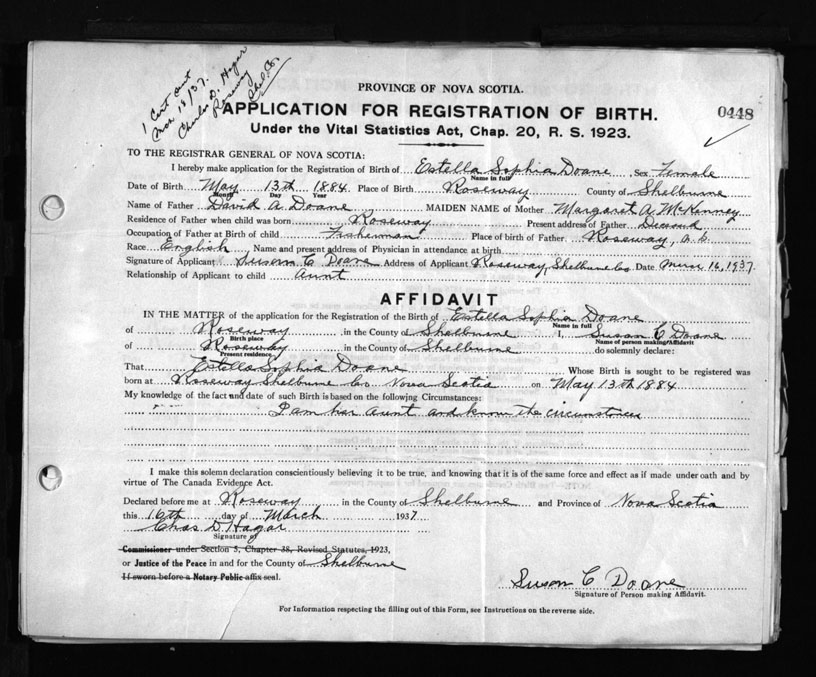 1 Cert sent
Mar 18/37.
Charles D. Hagar
Roseway
Shel. Co.
PROVINCE OF NOVA SCOTIA.
APPLICATION FOR REGISTRATION OF BIRTH.
0448
Under the Vital Statistics Act, Chap. 20, R. S. 1923.
TO THE REGISTRAR GENERAL OF NOVA SCOTIA:
I hereby make application for the Registration of Birth of Estella Sophia Doane Sex Female
Name in full
Date of Birth May 13th 1884 Place of Birth Roseway County of Shelburne
Month Day Year
Name of Father David A Doane MAIDEN NAME of Mother Margaret A. McKenney
Residence of Father when child was born Roseway Present address of Father
Occupation of Father at Birth of child Fisherman Place of birth of Father Roseway,
Race English Name and present address of Physician in attendance at birth
Signature of Applicant Susan C Doane Address of Applicant Roseway Shelburne Co Date 16, 1937.
Relationship of Applicant to child Aunt
AFFIDAVIT
IN THE MATTER of the application for the Registration of the Birth of Estella Sophia Doane
Name in full
of Roseway in the County of Shelburne I, Susan C Doane
Birth place Name of person making Affidavit
of Roseway in the County of Shelburne do solemnly declare:
Present residence
That Estella Sophia Doane Whose Birth is sought to be registered was
born at Roseway Shelburne Co Nova Scotia on May 13th 1884
My knowledge of the fact and date of such Birth is based on the following Circumstances:
I am her aunt and know the circumstances
I make this solemn declaration conscientiously believing it to be true, and knowing that it is of the same force and effect as if made under oath and by
virtue of The Canada Evidence Act.
Declared before me at Roseway in the County of Shelburne and Province of Nova Scotia
this 16th day of March 1937
Chas D Hagar
Signature of
Commissioner under Section 5, Chapter 38, Revised Statutes, 1923,
or Justice of the Peace in and for the County of Shelburne
If sworn before a Notary Public affix seal.
Susan C Doane
Signature of Person making Affidavit.
For Information respecting the filling out of this Form, see Instructions on the reverse side.